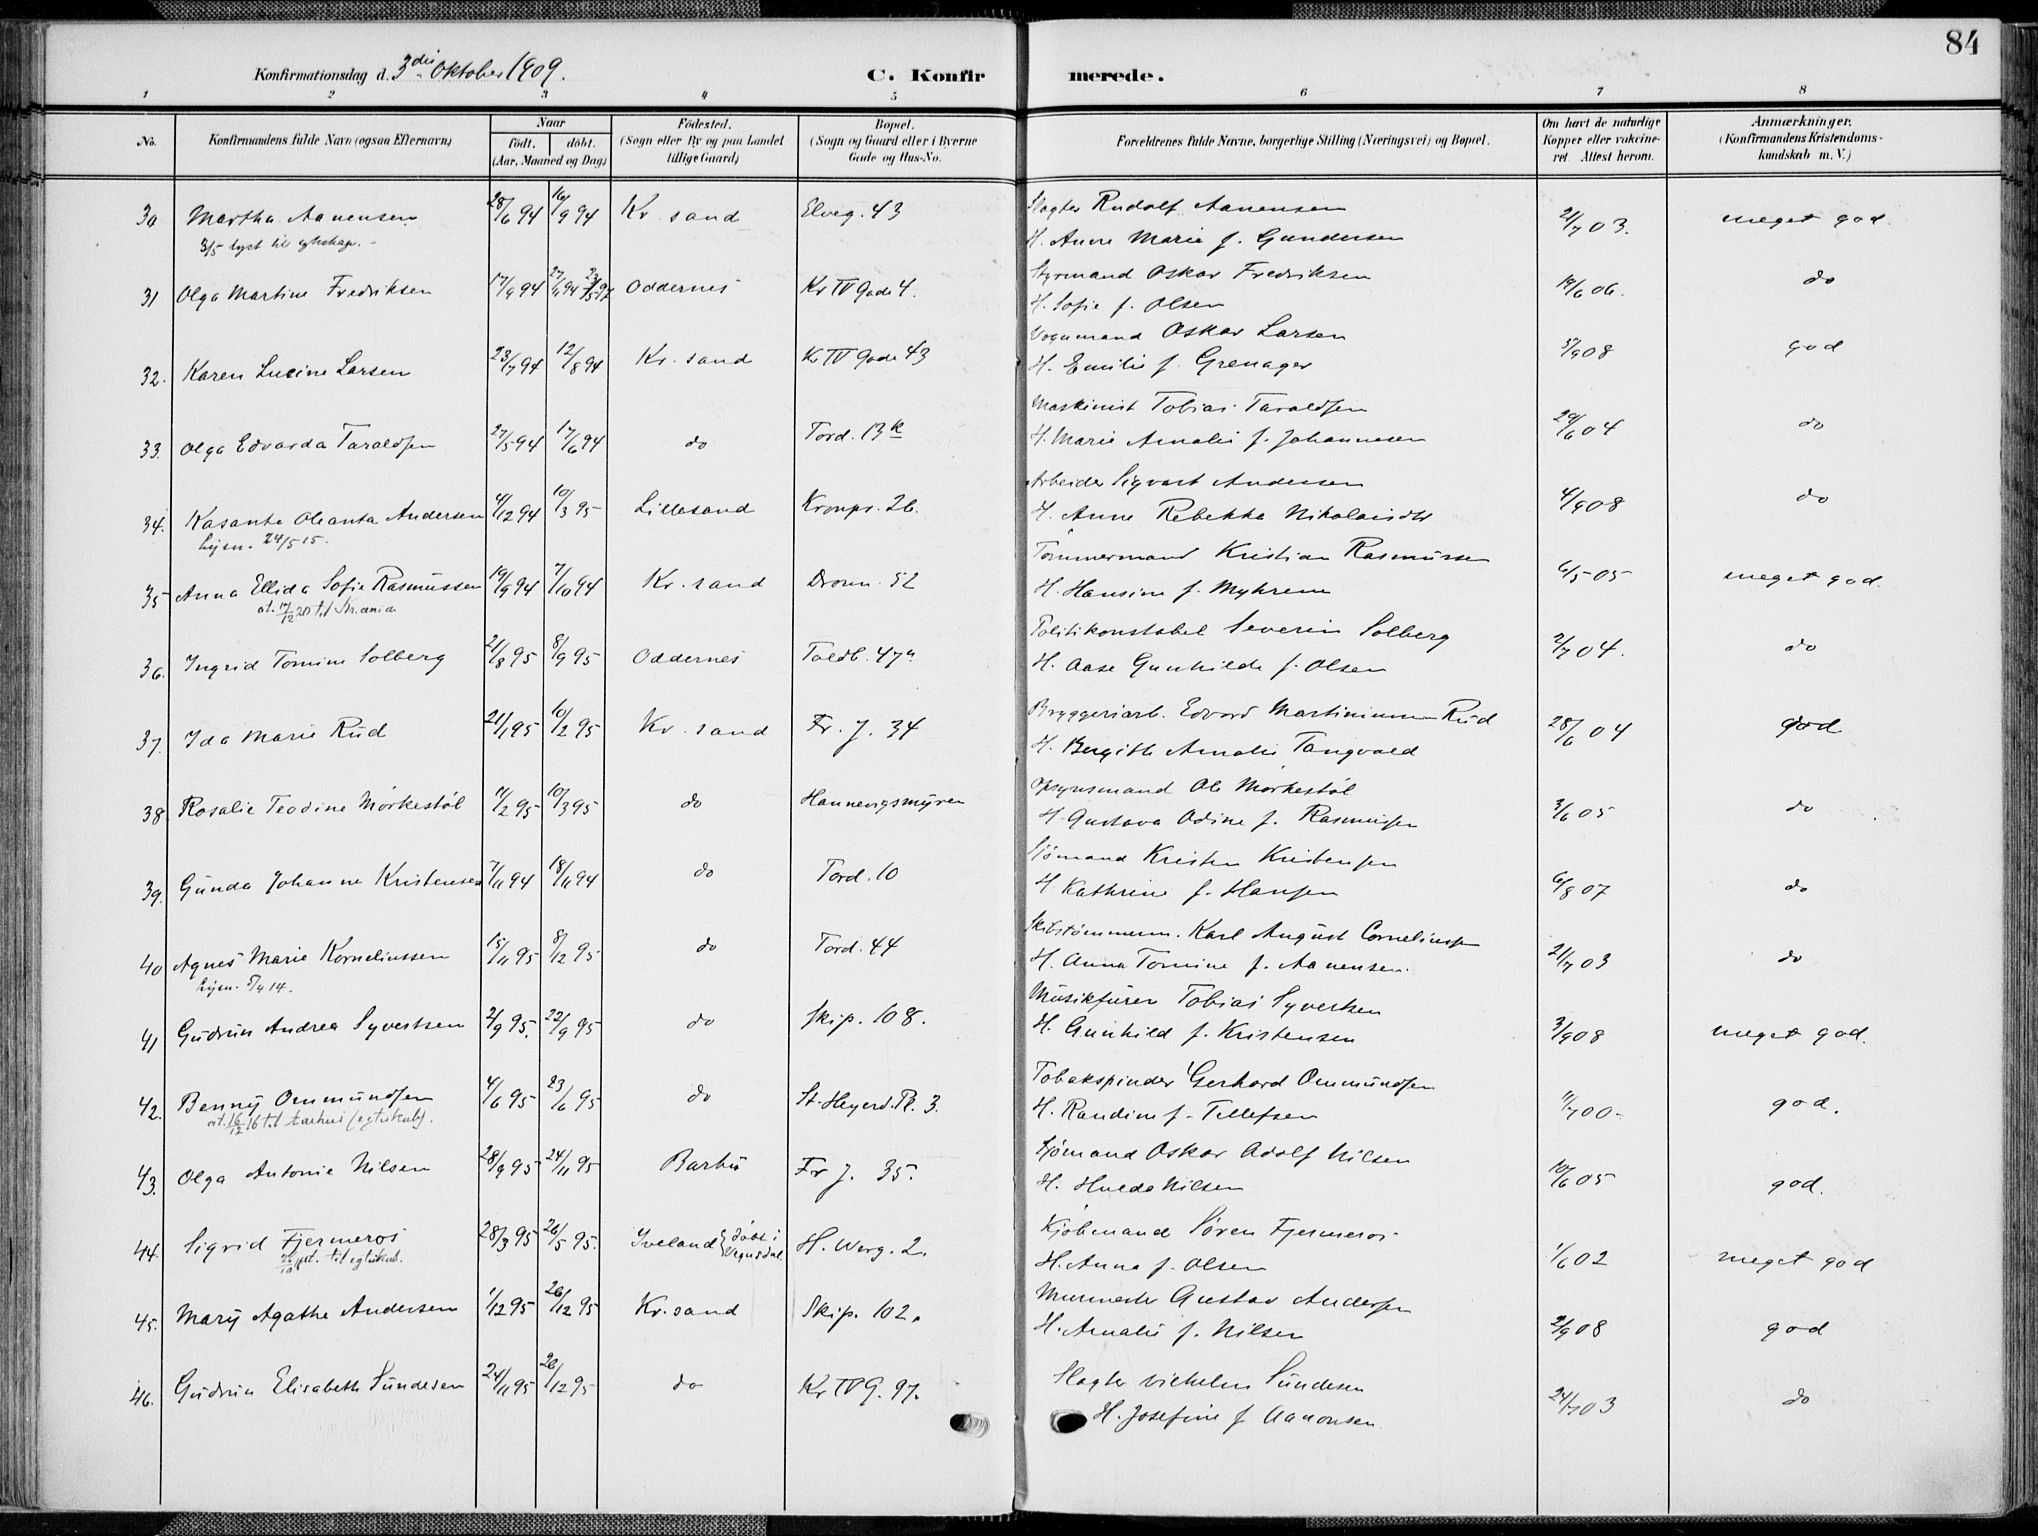 84
Konfirmationsdag d. 3die Oktober 1909.
C. Konfirmerede.
1 2 3 4 5 6 7 8
No. Konfirmandens fulde Navn (ogsaa Efternavn) Naar födt. döbt. (Aar, Maaned og Dag) Födested. (Sogn eller By og paa Landet tillige Gaard) Bopæl. (Sogn og Gaard eller i Byerne Gade og Hus-No. Forældrenes fulde Navne, borgerlige Stilling (Næringsvei) og Bopæl. Om havt de naturlige Kopper eller vakcineret. Attest herom. Anmærkninger. (Konfirmandens Kristendomskundskab m. V.)
30 Martha Aanensen 28/6 94 16/9 94 Kr. sand Elveg. 43 Slagter Rudolf Aanensen 21/7 03. meget god.
3/5 lyst til
H. Anne Marie f. Gundersen
31 Olga Martine Fredriksen 17/9 94 27/11 94 Oddernes Kr IV Gade 4. Styrmand Oskar Fredriksen 19/6 06. do
H. Sofie f. Olsen
32. Karen Lucine Larsen 23/7 94 12/8 94 Kr. sand Kr IV Gade 43 Vognmand Oskar Larsen 3/9 08 god
H. Emilie f. Grenager
33. Olga Edvarda Taraldsen 27/5 94 17/6 94 do Tord. 13 Maskinist Tobias Taraldsen 29/6 04 do
H. Marie Amalie f. Johannesen
34. Kasanta Oleanta Andersen 4/12 94 10/3 95 Lillesand Kronpr. 26. Arbeider Sigvart Andersen 4/9 08 do
lysn. 24/5 15.
H. Anne Rebekka Nikolaisdtr
35 Anna Ellida Sofie Rasmussen 19/9 94 7/10 94 Kr. sand Dronn. 52 Tømmermand Kristian Rasmussen 6/5 05 meget god.
at. 17/12 20 til Kr.ania
H. Hansine f. Myhren
36. Ingrid Tomine Solberg 21/8 95 8/9 95 Oddernes Toldb. 47a. Politikonstabel Severin Solberg 2/7 04. do
H. Aase Gunhilde f. Olsen
37. Ida Marie Rud 21/1 95 10/2 95 Kr. sand Fr. J. 34 Bryggeriarb. Edvard Martiniussen Rud 28/6 04 god
H. Bergith Amalie Tangvald
38. Rosalie Teodine Mørkestøl 7/2 95 10/3 95 do Hannevigsmyren Opsynsmand Ole Mørkestøl 3/6 05 do
H. Gustava Odine f. Rasmussen
39. Gunda Johanne Kristensen 7/11 94 18/11 94 do Tord. 10 Sjømand Kristen Kristensen 6/8 07 do
H Kathrine f. Hansen
40 Agnes Marie Korneliussen 15/11 95 8/12 95 do Tord. 44 Skibstømmerm. Karl August Corneliussen 21/7 03 do
lysn. 5/4 14.
H. Anna Tomine f. Aanensen.
41 Gudrun Andrea Syvertsen 2/9 95. 22/9 95 do Skip. 108. Musikfürer Tobias Syvertsen 3/9 08 meget god.
H. Gunhild f. Kristensen
42. Benny Ommundsen 4/6 95 23/6 95 do St. Heyerd. Pl. 3. Tobakspinder Gerhard Ommundsen 11/7 00. god.
at. 16/12 16 til Aarhus (egteskab).
H. Randine f. Tellefsen
43. Olga Antonie Nilsen 28/9 95 24/11 95 Barbu Fr J. 35. Sjømand Oskar Adolf Nilsen 10/6 05 god.
H. Hulda Nilsen
44. Sigrid Fjermeros 28/3 95 26/5 95. Iveland {døbt i Vegusdal H. Werg. 2. Kjøbmand Søren Fjermeros 1/6 02 meget god
at. til egteskab.
H. Anna f. Olsen
45. Mary Agathe Andersen 1/12 95 26/12 95 Kr. sand Skip. 102. Murmester Gustav Andersen 2/9 08 god
H. Amalie f. Nilsen
46. Gudrun Elisabeth Sundesen 24/11 95 26/12 95 do Kr IV G. 97. Slagter Vilhelm Sundesen 24/7 03 do
H. Josefine f Aanonsen